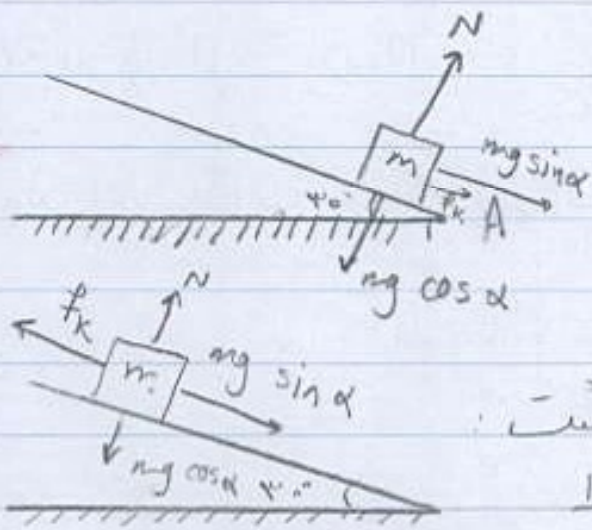 N
m
mg sin α
۳۰°
f_k
A
mg cos α
f_k
N
m
mg sin α
mg cos α
۳۰°